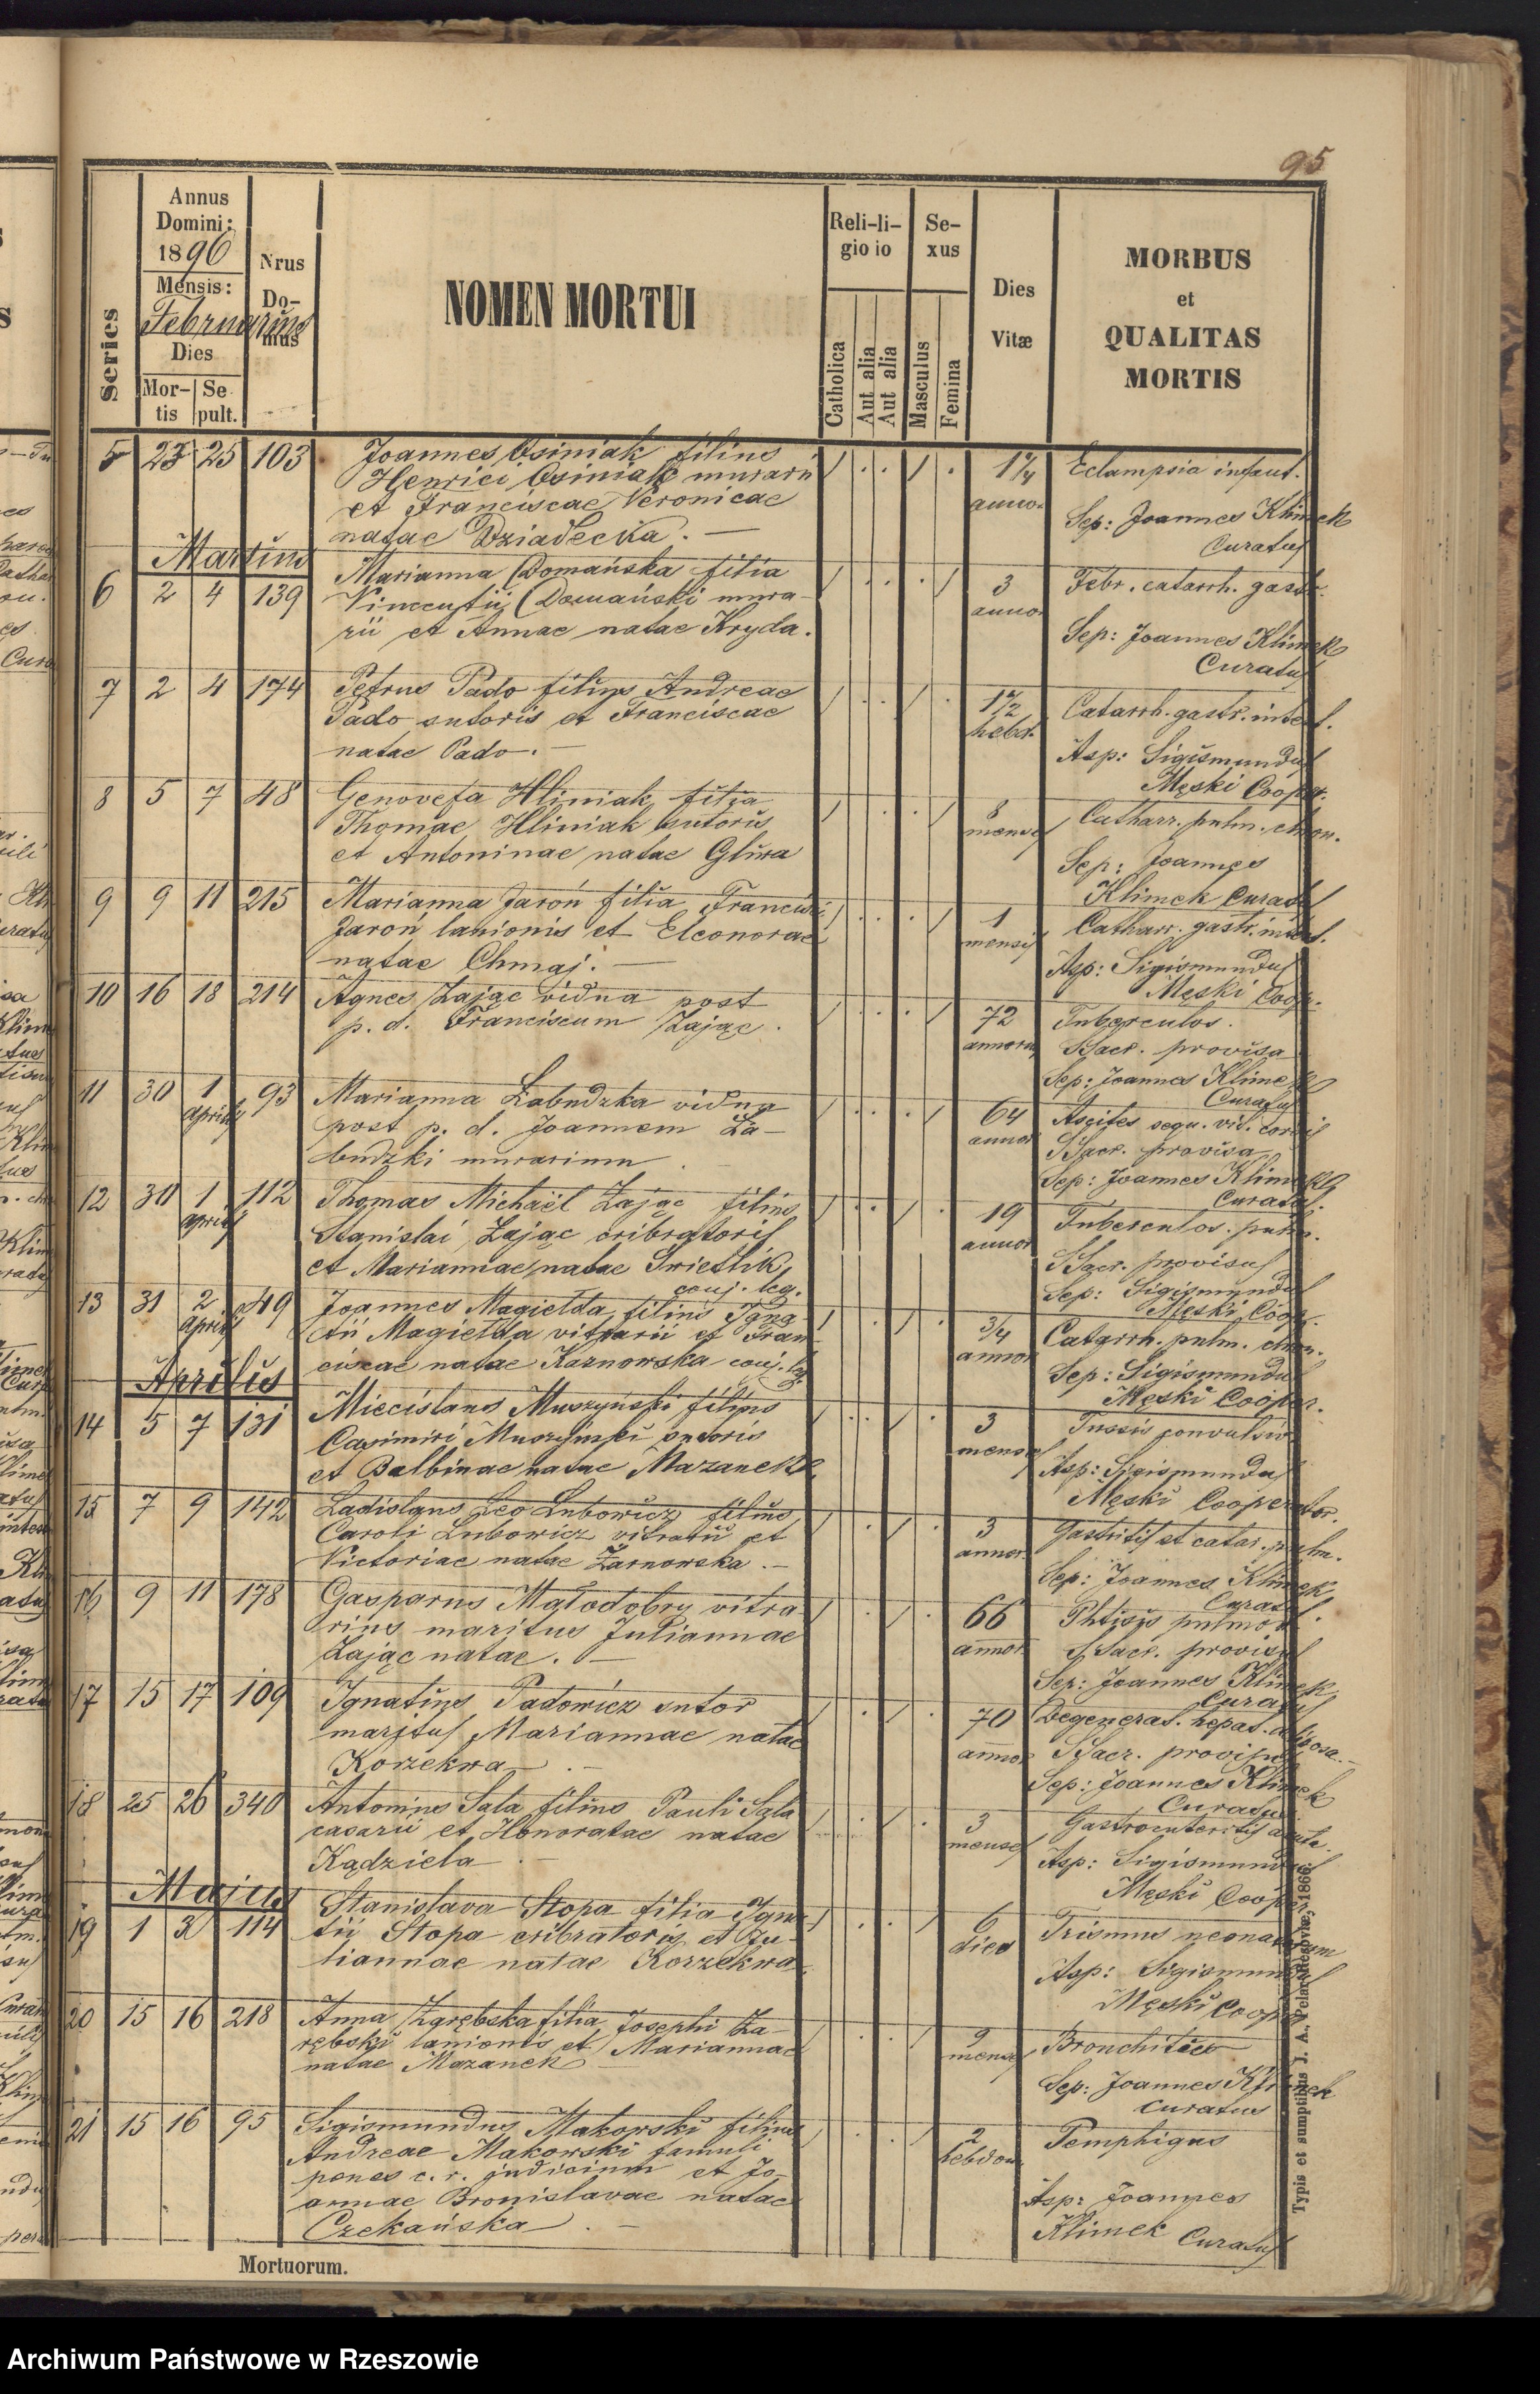 95
Annus
Domini:
1896
Mensis:
Februarius
Dies
Mor- Se
tis pult.
Series
Nrus
Do-
mus
NOMEN MORTUI
Reli-li-
gio io
Catholica
Aut alia
Aut alia
Se-
xus
Masculus
Femina
Dies
Vitæ
MORBUS
et
QUALITAS
MORTIS
5 23 25 103 Joannes Osiniak filius
Henrici Osiniak murarii
et Franciscae Veronicae
natae Dziadecka.
1 1/4
annor.
Eclampsia infant.
Sep: Joannes Klimek
Curatus
Martius
6 2 4 139 Marianna Domańska filia
Vincentii Domański mura-
rii et Annae natae Kryda.
3
annor
Febr. catarrh. gastr.
Sep: Joannes Klimek
Curatus
7 2 4 174 Petrus Pado filius Andreae
Pado sutoris et Franciscae
natae Pado.
1 1/2
hebd.
Catarrh. gastr. intest.
Asp: Sigismundus
Męski Cooper.
8 5 7 48 Genovefa Hliniak filia
Thomae Hliniak sutoris
et Antoninae natae Gliwa
8
menses
Catharr. pulm. chron.
Sep: Joannes
Klimek Curatus
9 9 11 215 Marianna Jaroń filia Francisci
Jaroń lanionis et Eleonorae
natae Chmaj.
1
mensis
Catharr. gastr. intest.
Asp: Sigismundus
Męski Coop.
10 16 18 214 Agnes Zając vidua post
p. d. Franciscum Zając.
72
annorum
Tuberculos.
SSacr. provisa
Sep: Joannes Klimek
Curatus
11 30 1 93 Marianna Żabudzka vidua
Aprilis
post p. d. Joannem Ża-
budzki murarium
64
annor
Ascites sequ. vit. cordis
SSacr. provisa
Sep: Joannes Klimek
Curatus.
12 30 1 112 Thomas Michaël Zając filius
Aprilis
Stanislai Zając cribratoris
et Mariannae natae Świetlik
conj. leg.
19
annor
Tuberculos. pulm.
SSacr. provisus
Sep: Sigismundus
Męski Coop.
13 31 2 49 Joannes Magietda filius Igna-
Aprilis
tii Magietda vitrarii et Fran-
ciscae natae Kaznowska conj. leg.
3/4
annor
Catarrh. pulm. chron.
Sep: Sigismundus
Męski Cooper.
Aprilis
14 5 7 131 Miecislaus Muszyński filius
Casimiri Muszyński sutoris
et Balbinae natae Mazanek
3
menses
Tussis convulsiv.
Asp: Sigismundus
Męski Cooperator.
15 7 9 142 Ladislaus Leo Lubowicz filius
Caroli Lubowicz vitrarii et
Victoriae natae Żarnowska.
3
annor.
Gastritis et catar. pulm.
Sep: Joannes Klimek
Curatus.
16 9 11 178 Gasparus Małodobry vitra-
rius maritus Juliannae
Zając natae.
66
annor.
Phtisis pulmon.
SSacr. provisus
Sep: Joannes Klimek
Curatus
17 15 17 109 Ignatius Padowicz sutor
maritus Mariannae natae
Korzekwa
70
annor
Degenerat. hepat. adiposa.
SSacr. provisus
Sep: Joannes Klimek
Curatus
18 25 26 340 Antonius Sala filius Pauli Sala
casarii et Honoratae natae
Kądziela
3
menses
Gastroenteritis acuta.
Asp: Sigismundus
Męski Coop.
Majus
19 1 3 114 Stanislava Stopa filia Igna-
tii Stopa cribratoris et Ju-
liannae natae Korzekwa
6
dies
Trismus neonatorum
Asp: Sigismundus
Męski Coop.
20 15 16 218 Anna Zarębska filia Josephi Za-
rębski lanionis et Mariannae
natae Mazanek
9
menses
Bronchitis
Sep: Joannes Klimek
Curatus
21 15 16 95 Sigismundus Makowski filius
Andreae Makowski famuli
penes c. r. judicium et Jo-
annae Bronislavae natae
Czekańska
2
hebdom.
Pemphigus
Asp: Joannes
Klimek Curatus
Mortuorum.
Typis et sumptibus J. A. Pelar Rzeszoviae, 1866.
Archiwum Państwowe w Rzeszowie